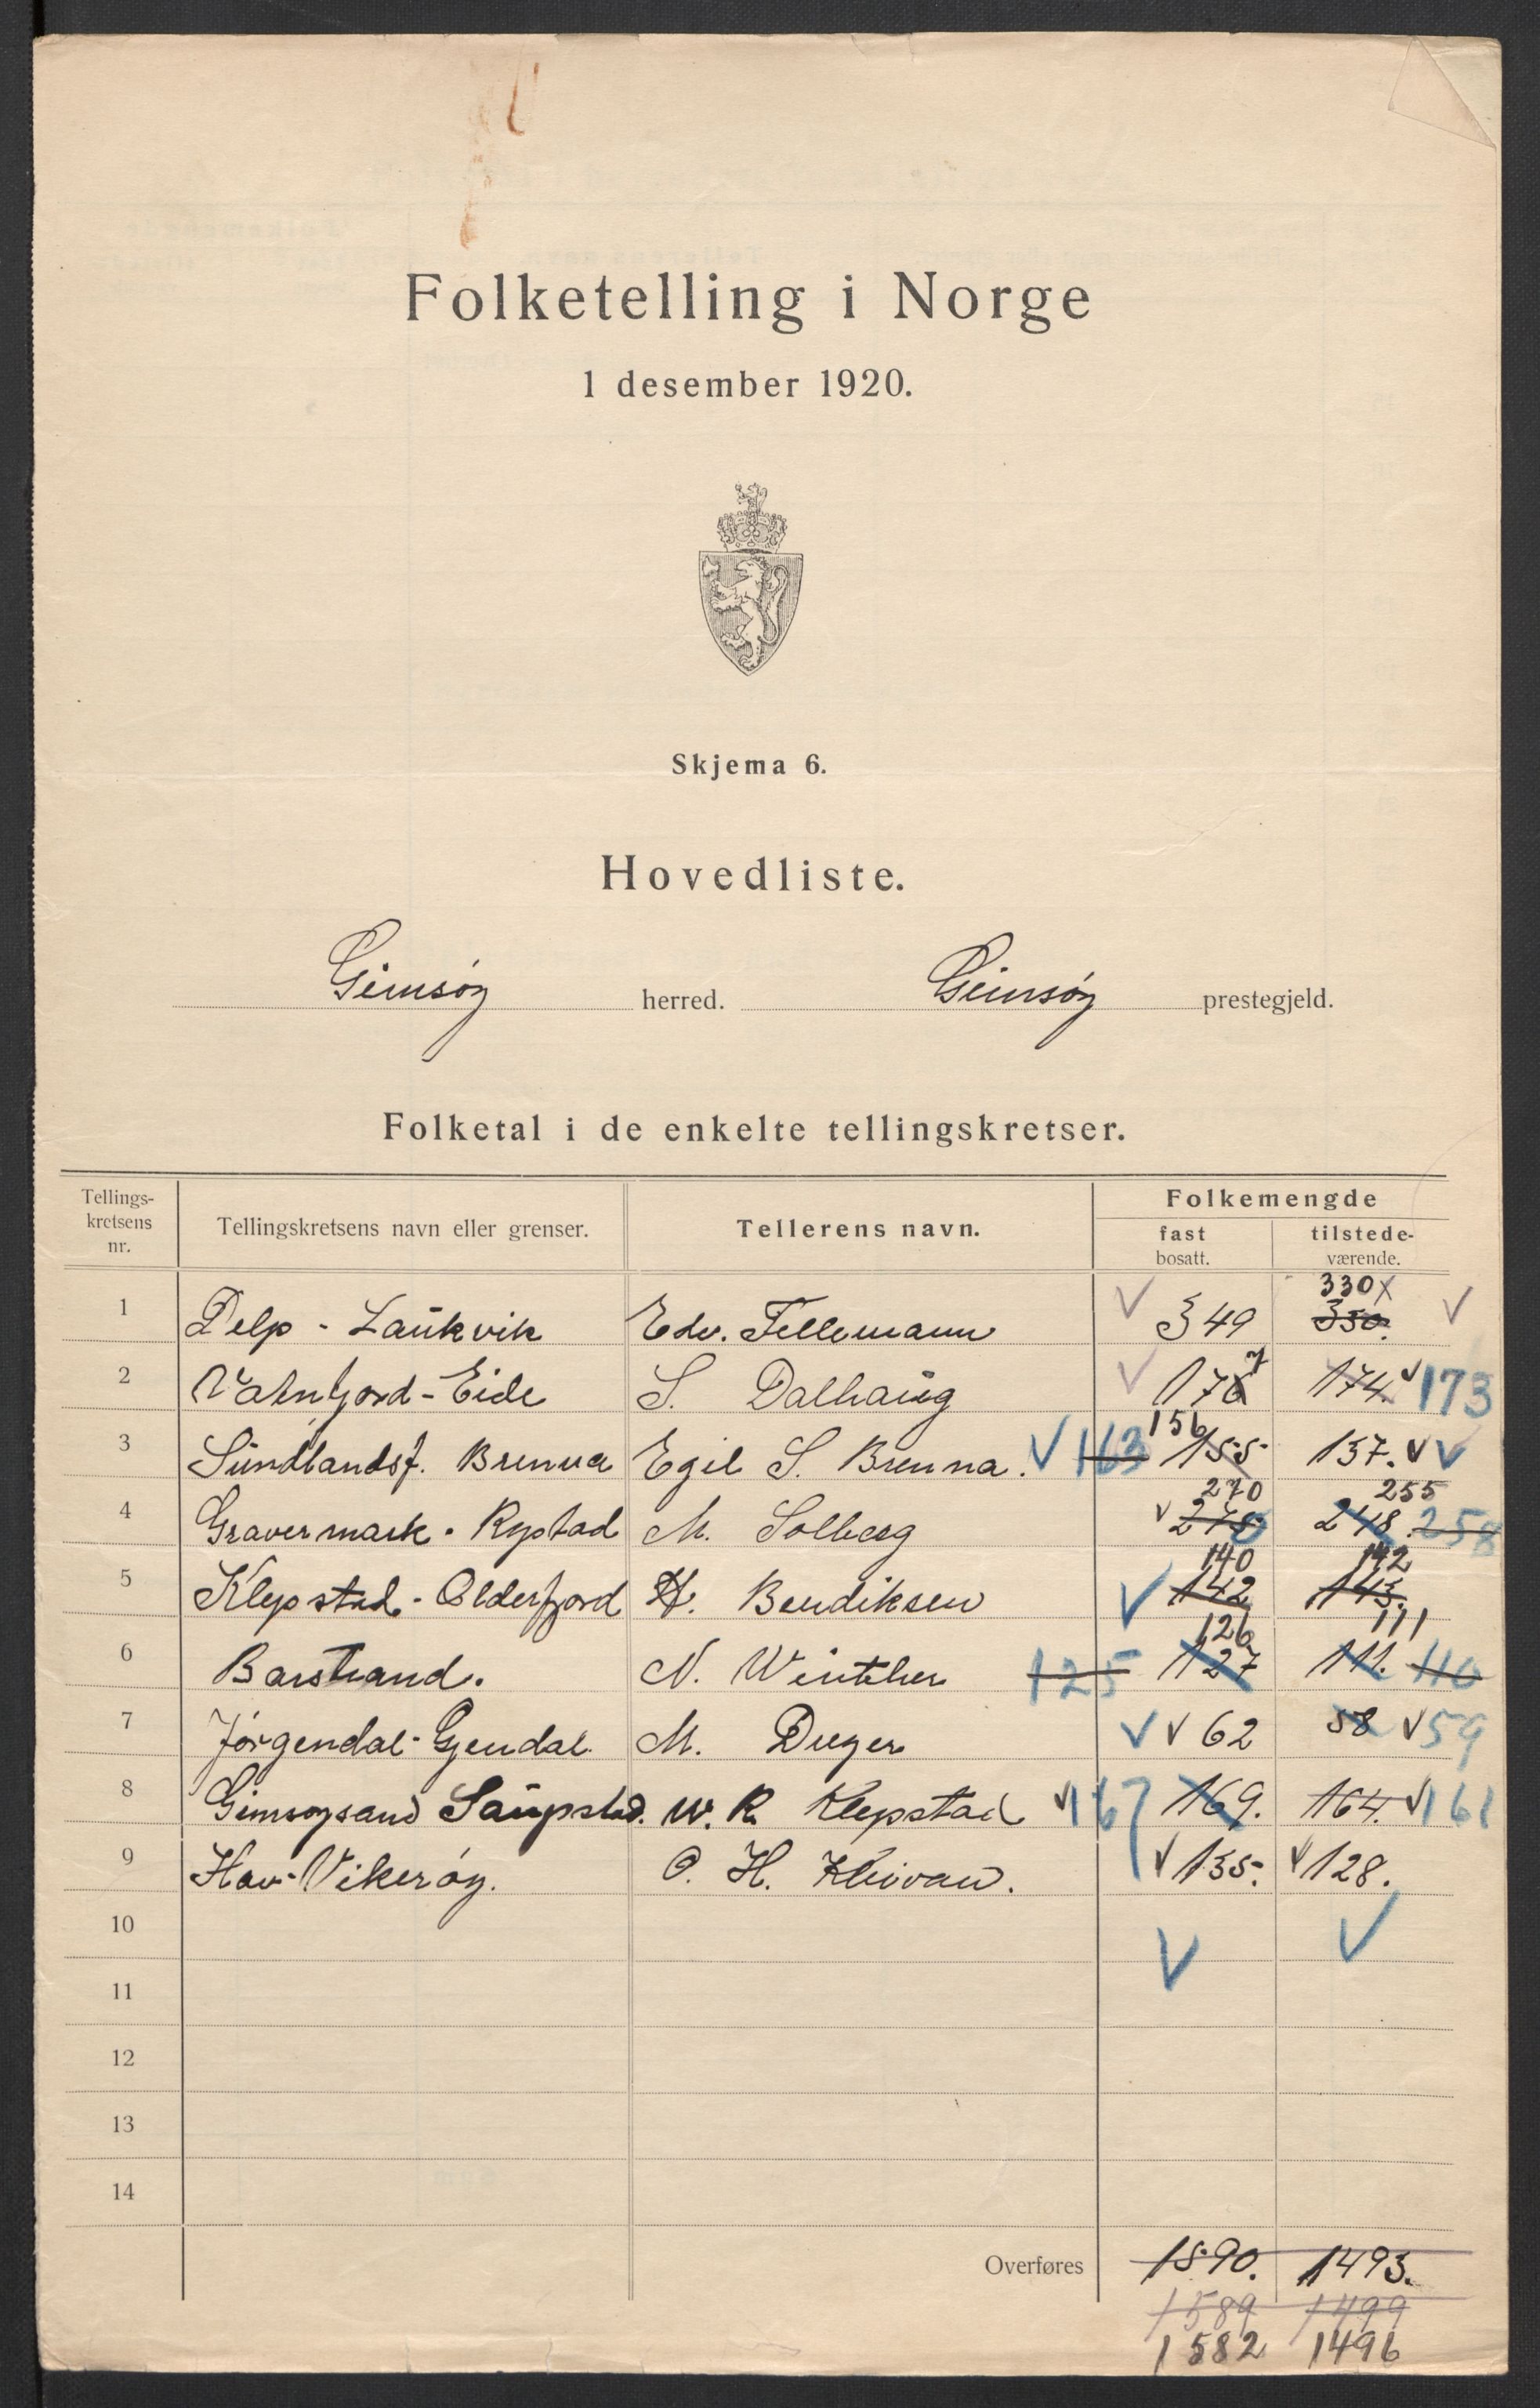 Folketelling i Norge
1 desember 1920.
Skjema 6.
Hovedliste.
Gimsøy herred. Gimsøy prestegjeld.
Folketal i de enkelte tellingskretser.
Tellings-kretsens nr. Tellingskretsens navn eller grenser. Tellerens navn. Folkemengde fast bosatt. tilstede-værende.
330 x
1 Delp - Laukvik Edv. Tellemann √ 349 350. √
2 Vatnfjord - Eide S. Dalhaug √ 176 7 174. √ 173
156
3 Sundlandsf. Brenna Egil S. Brenna. √ 163 155 137. √ √
270 255
4 Gravermark - Rystad M. Solberg √ 248. 258
140 142
5 Klepstad - Olderfjord H. Bendiksen √ 142 143.
126 111
6 Barstrand. N. Winther 125 127 111. 110
7 Jørgendal - Gjendal. M. Dreyer √ √ 62 58 √ 59
8 Gimsøysand Saupstad. W. R. Klepstad √ 167 169. 164. √ 161
9 Hov - Vikerøy. O. H. Kleivan. √ 135. √ 128.
10 √ √
11
12
13
14
Overføres 1590. 1493.
1589 1499
1582 1496